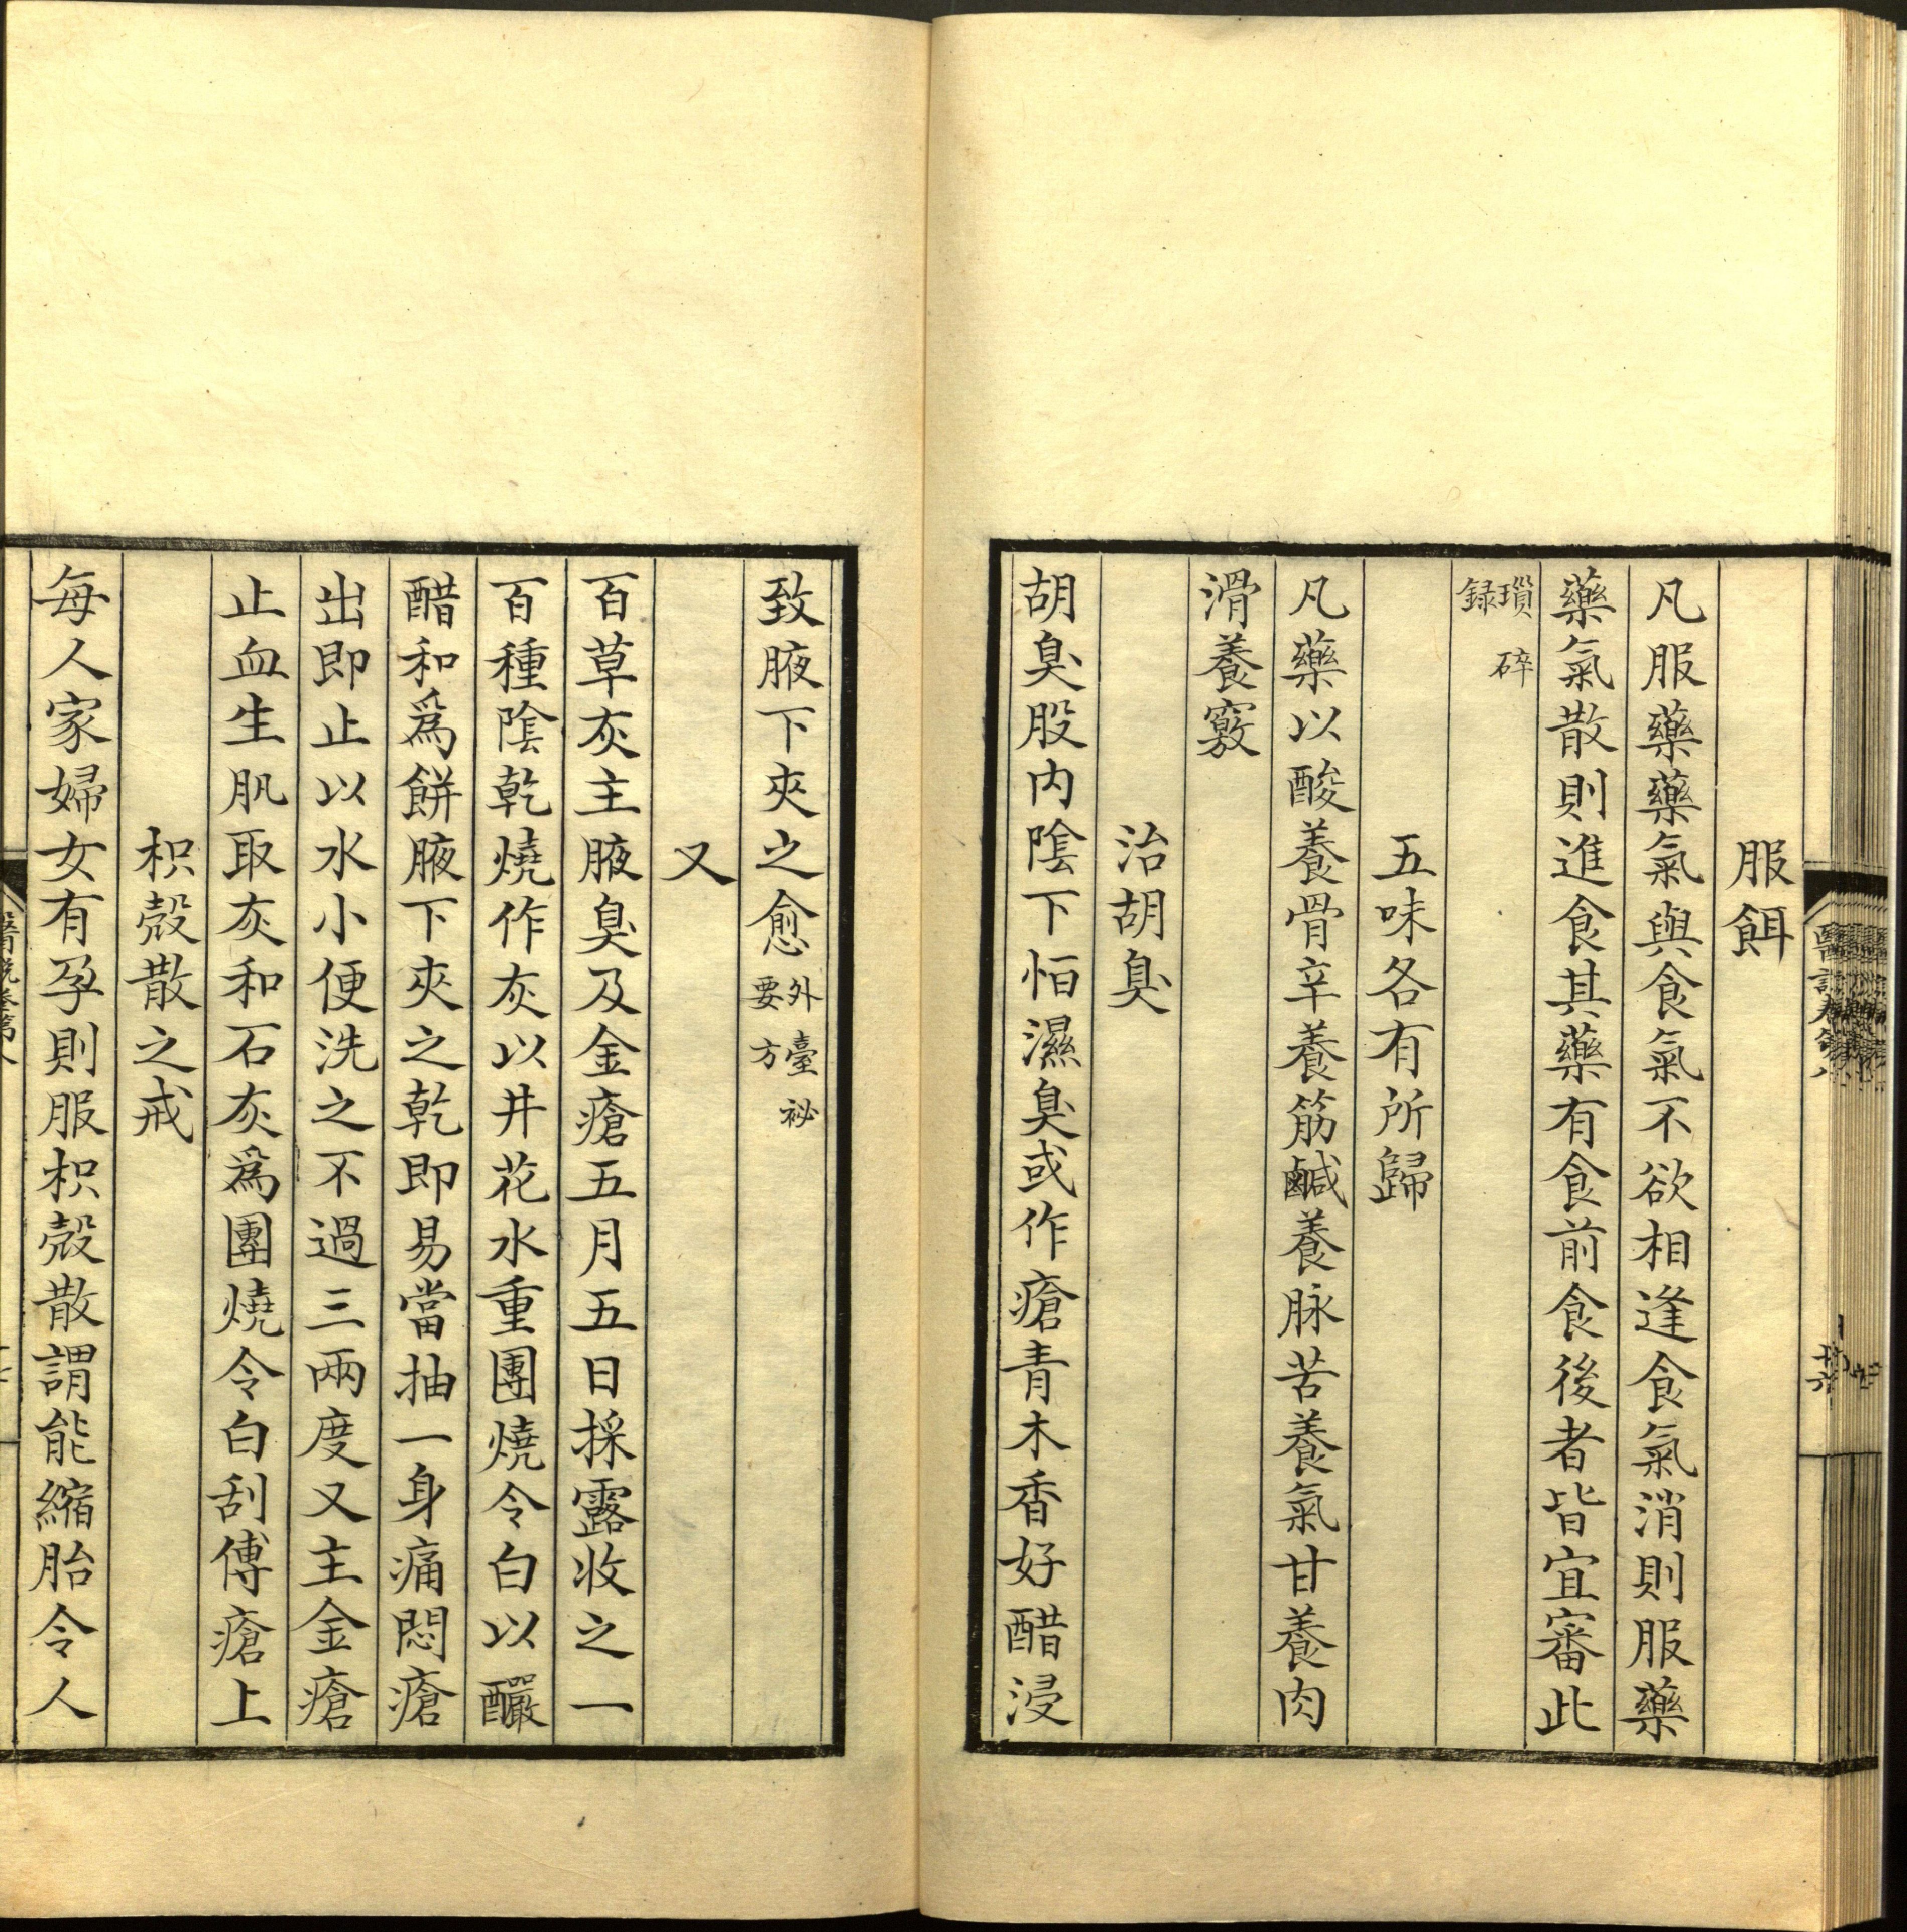 服餌
凡服藥藥氣與食氣不欲相逢食氣消則服藥
藥氣散則進食其藥有食前食後者皆宜審此
瑣碎
録
五味各有所歸
凡藥以酸養骨辛養筋鹹養脉苦養氣甘養肉
滑養竅
治胡臭
胡臭股内陰下怕濕臭或作瘡青木香好醋浸
致腋下夾之愈
外臺祕
要方
又
百草灰主腋臭及金瘡五月五日採露收之一
百種陰乾燒作灰以井花水重團燒令白以釅
醋和爲餅腋下夾之乾即易當抽一身痛悶瘡
出即止以水小便洗之不過三兩度又主金瘡
止血生肌取灰和石灰爲團燒令白刮傅瘡上
枳殼散之戒
每人家婦女有孕則服枳殼散謂能縮胎令人